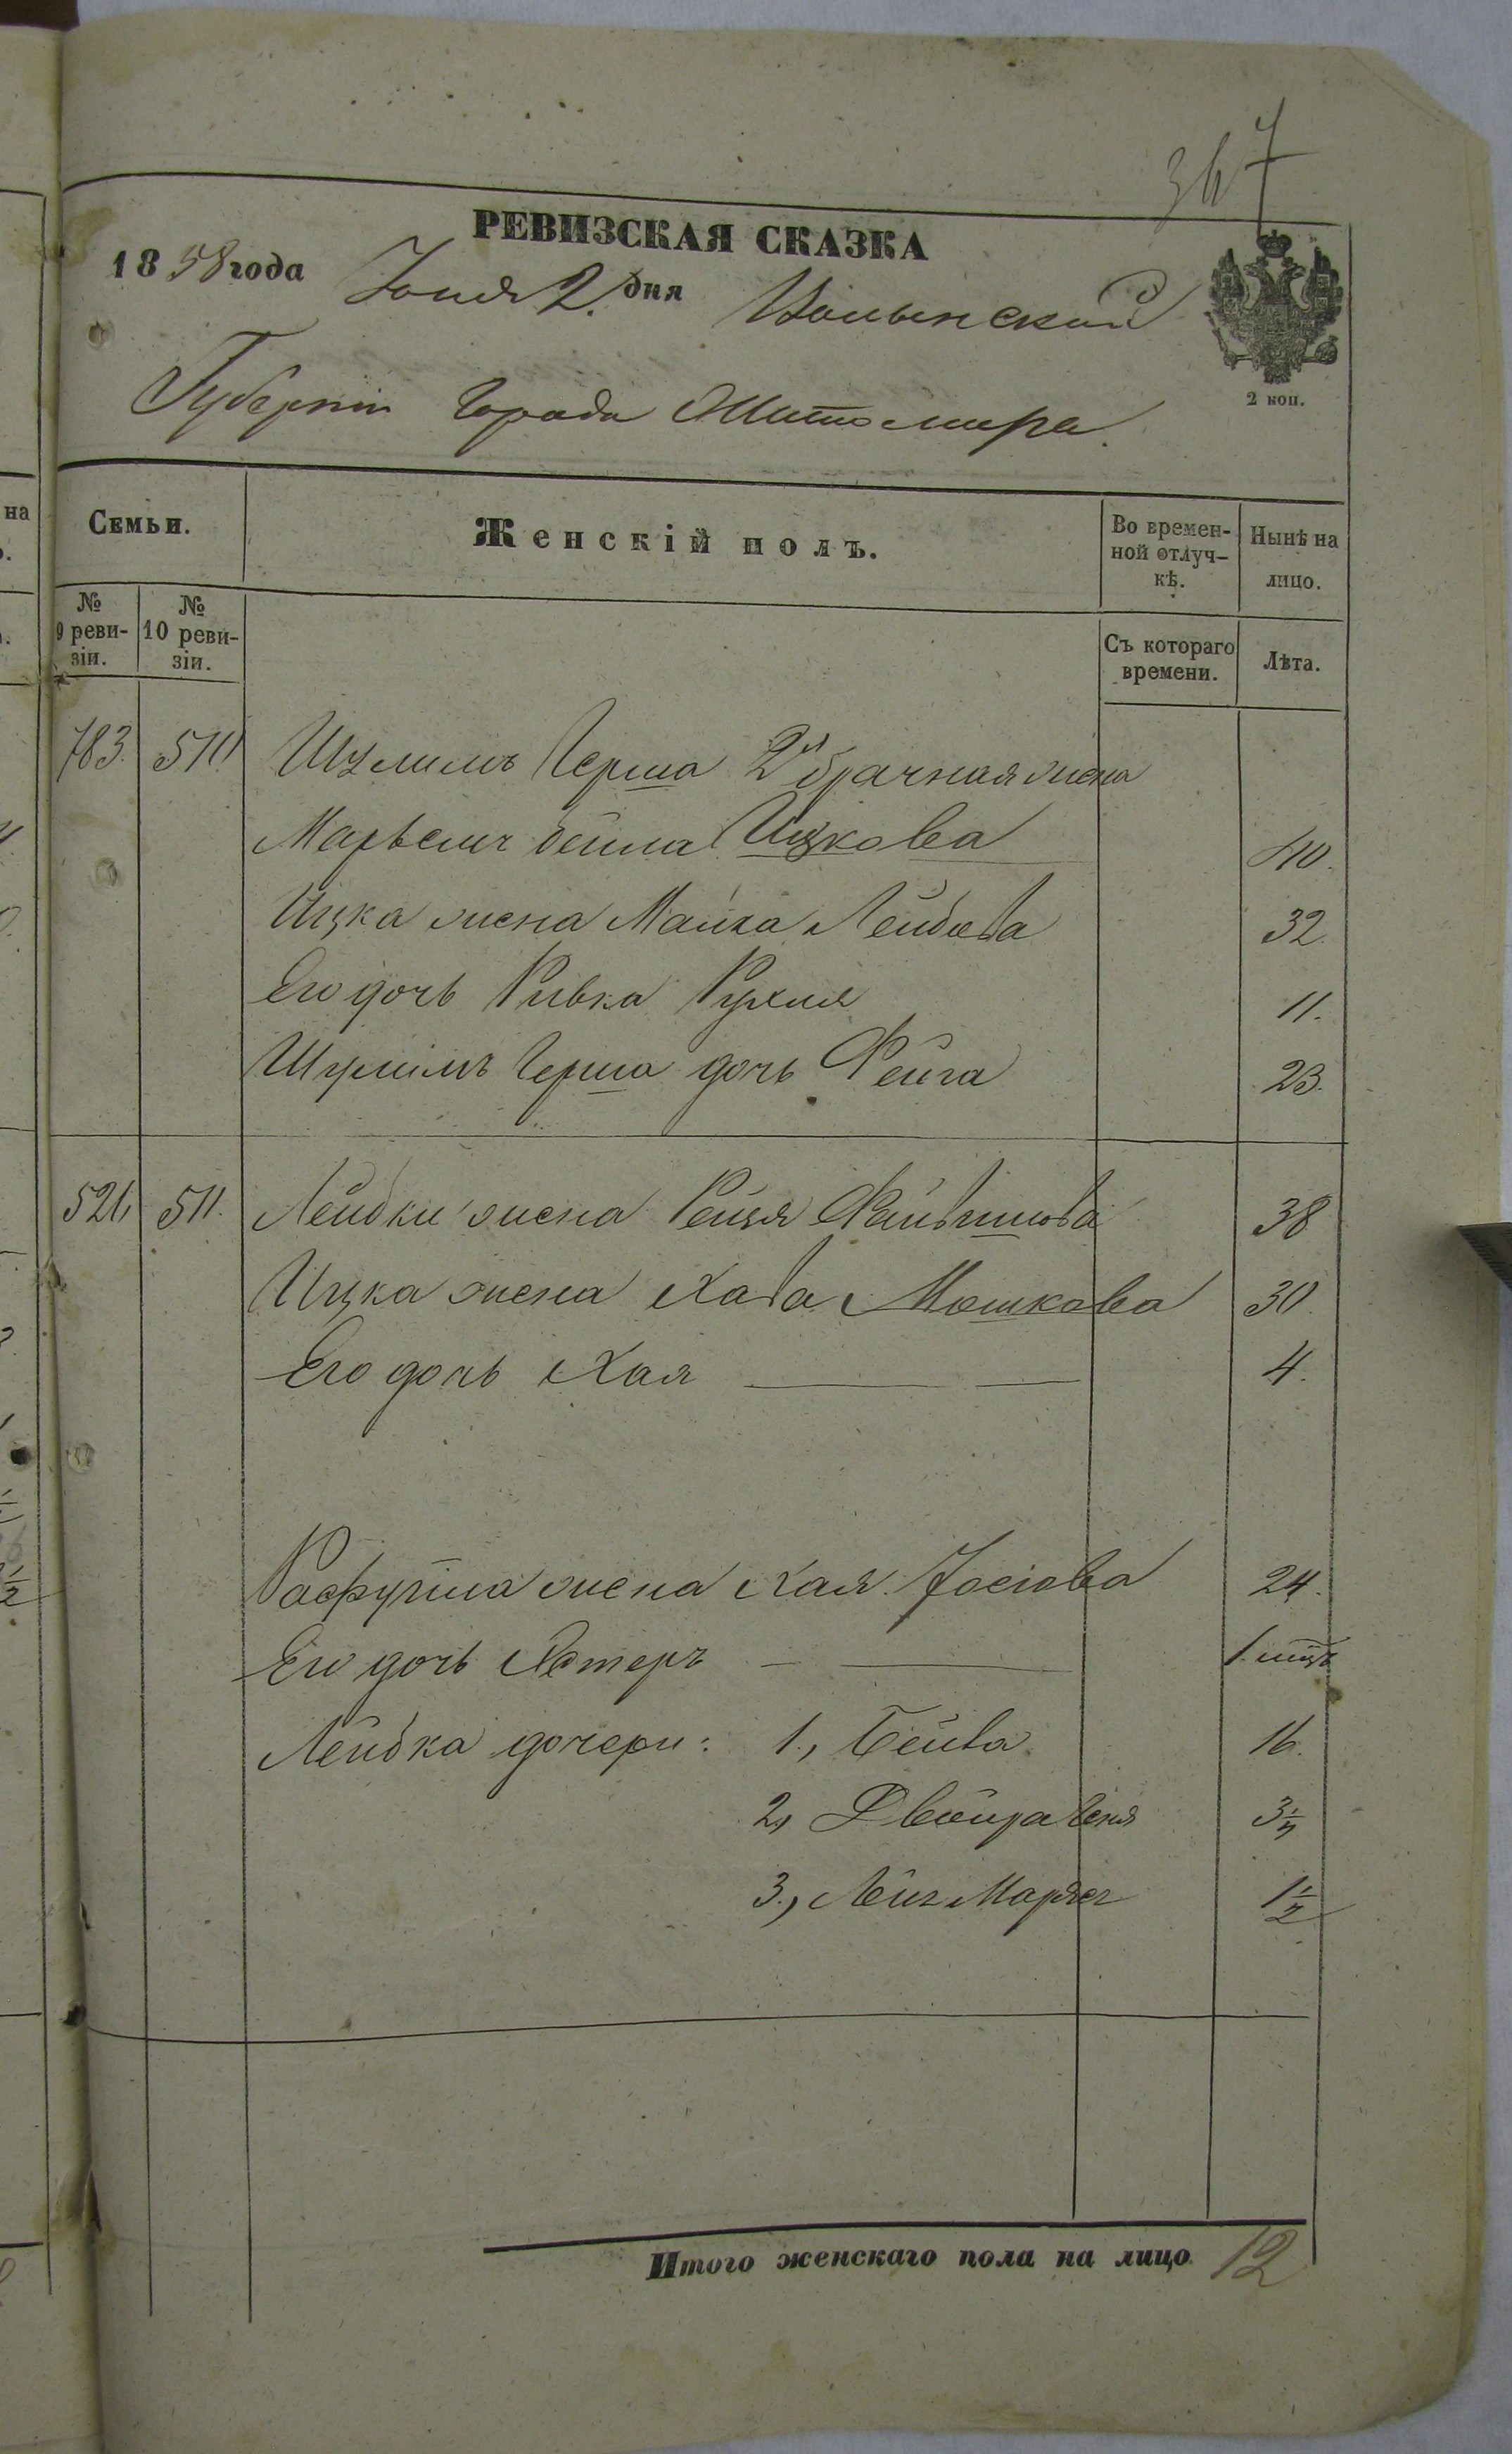 367
РЕВИЗСКАЯ СКАЗКА
1858 года Іюня 2. дня Волынской
2 коп.
Губерніи Города Житомира.
Семьи.
Женскій полъ.
Во времен-
ной отлуч-
кѣ.
Нынѣ на
лицо.
№
9 реви-
зіи.
№
10 реви-
зіи.
Съ котораго
времени.
Лѣта.
783. 510 Шулимъ Герша 2й брачная жена
Бейла Ицкова 40.
Ицка жена Малка Лейбова 32.
Его дочь Ривка Рухля 11.
Шулимъ Герша дочь Фейга 23.
526 511. Лейбки жена Рейзя 38
Ицка жена Хава Мошкова 30.
Его дочь Хая 4.
жена Хая Іосіова 24.
Его дочь Эстеръ 1.
Лейбка дочери: 1., Бейла 16.
2, Двойра 3½
3., 1½
Итого женскаго пола на лицо 12